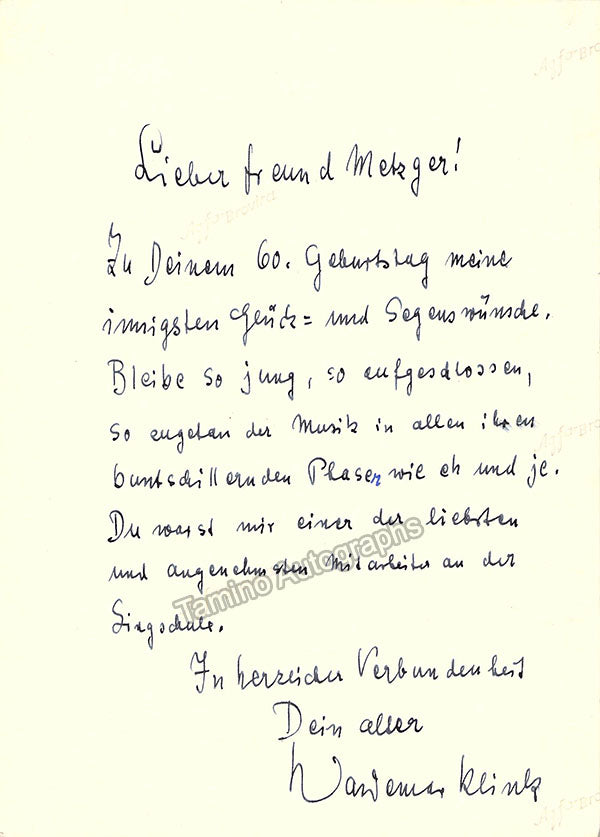 Lieber Freund Metzger!
Zu Deinem 60. Geburtstag meine
innigsten Glück= und Segenswünsche.
Bleibe so jung, so aufgeschlossen,
so angetan der Musik in allen ihren
buntschillernden Phasen wie eh und je.
Du warst mir einer der liebsten
und angenehmsten Mitarbeiter an der
Singschule.
In herzlicher Verbundenheit
Dein alter
Waldemar Klink
Tamino Autographs
Agfa-Brovira